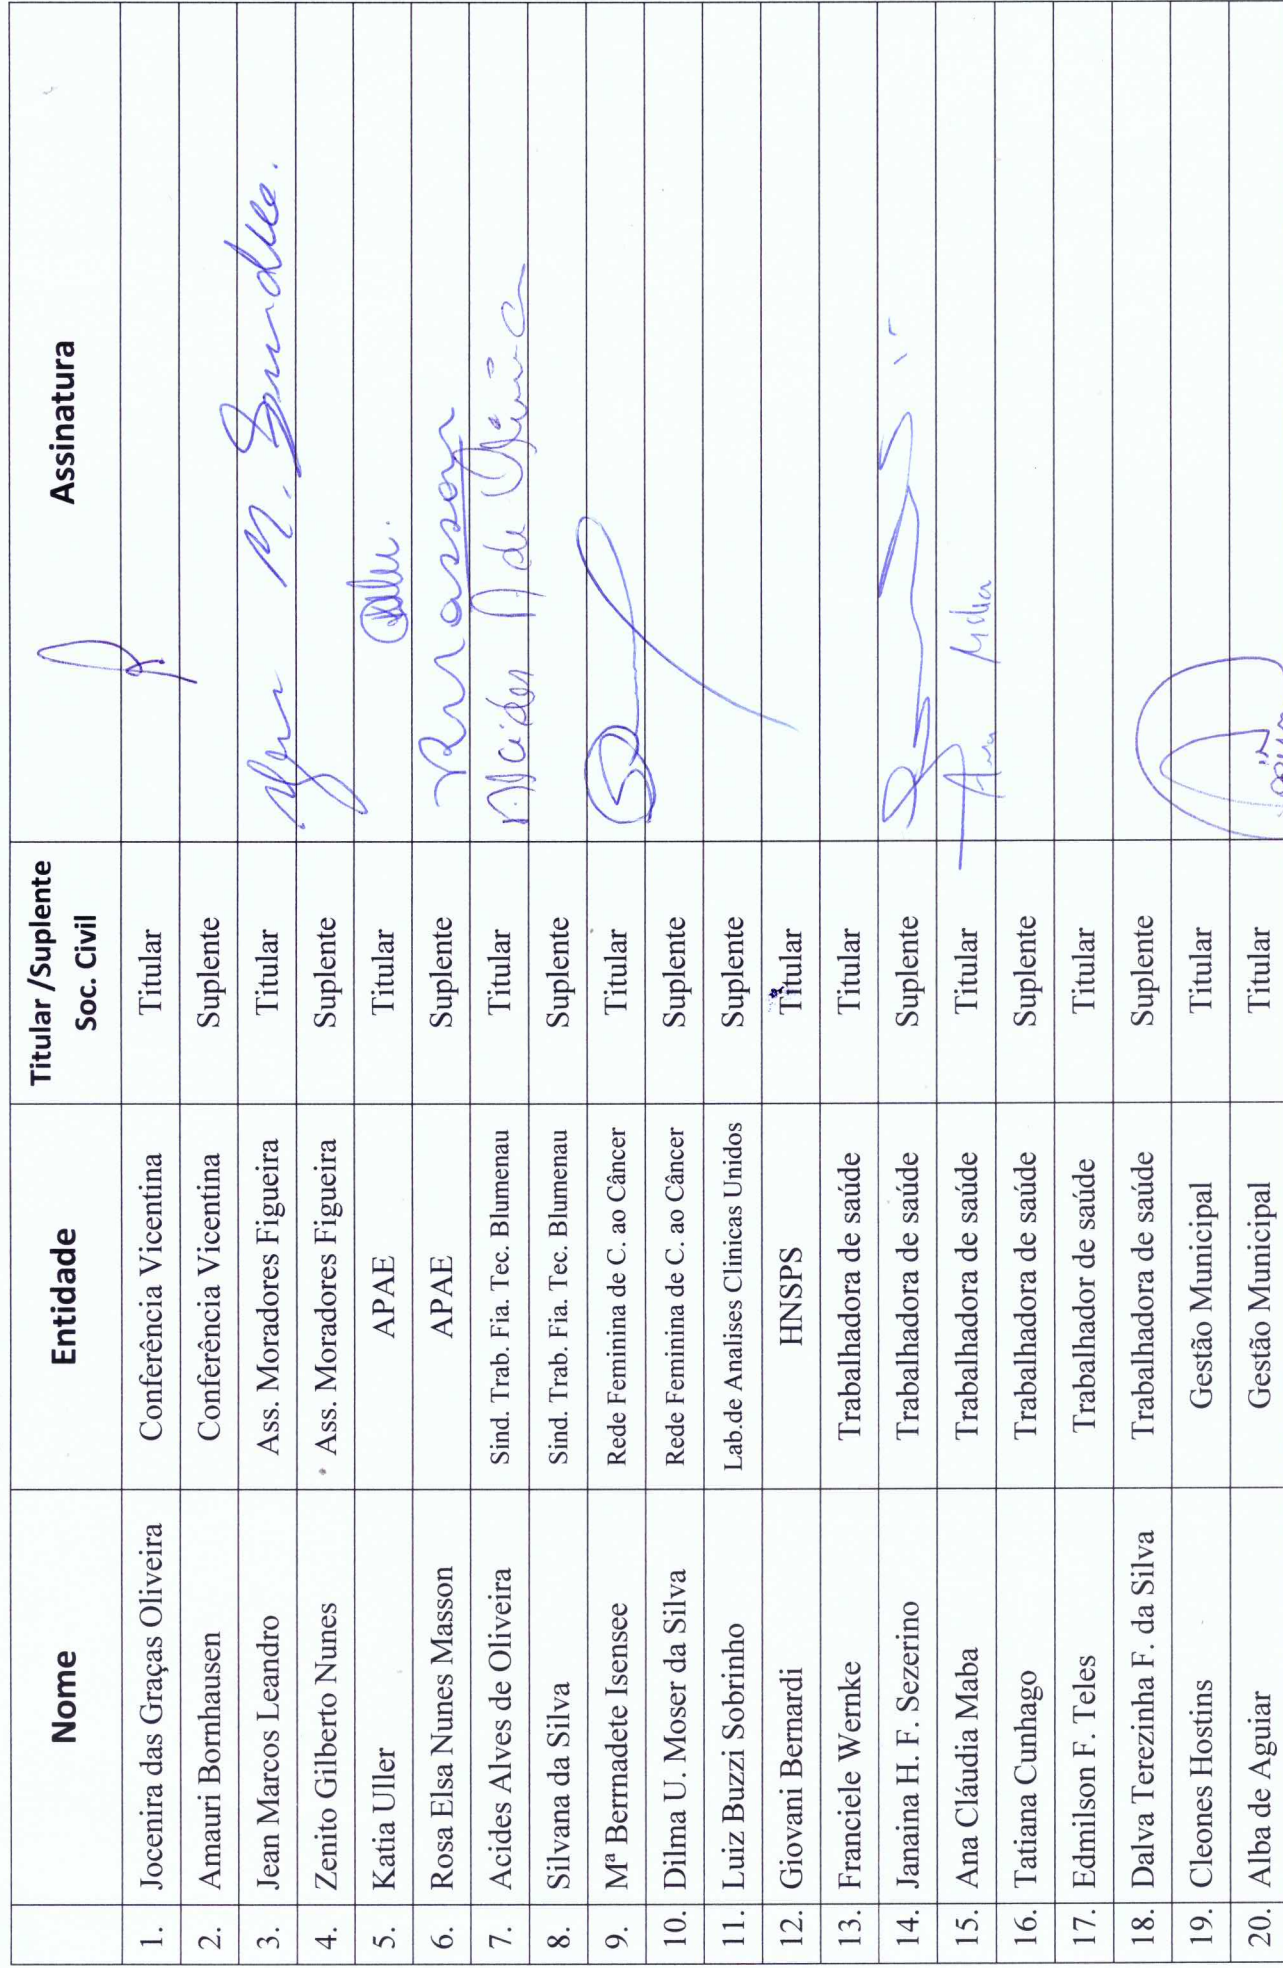 Nome Entidade Titular /Suplente Soc. Civil Assinatura
1. Jocenira das Graças Oliveira Conferência Vicentina Titular
2. Amauri Bornhausen Conferência Vicentina Suplente
3. Jean Marcos Leandro Ass. Moradores Figueira Titular
4. Zenito Gilberto Nunes Ass. Moradores Figueira Suplente
5. Katia Uller APAE Titular
6. Rosa Elsa Nunes Masson APAE Suplente Rmasson
7. Acides Alves de Oliveira Sind. Trab. Fia. Tec. Blumenau Titular Alcides A de Oliveira
8. Silvana da Silva Sind. Trab. Fia. Tec. Blumenau Suplente
9. Mª Berrnadete Isensee Rede Feminina de C. ao Câncer Titular
10. Dilma U. Moser da Silva Rede Feminina de C. ao Câncer Suplente
11. Luiz Buzzi Sobrinho Lab.de Analises Clinicas Unidos Suplente
12. Giovani Bernardi HNSPS Titular
13. Franciele Wernke Trabalhadora de saúde Titular
14. Janaina H. F. Sezerino Trabalhadora de saúde Suplente
15. Ana Cláudia Maba Trabalhadora de saúde Titular Ana
16. Tatiana Cunhago Trabalhadora de saúde Suplente
17. Edmilson F. Teles Trabalhador de saúde Titular
18. Dalva Terezinha F. da Silva Trabalhadora de saúde Suplente
19. Cleones Hostins Gestão Municipal Titular
20. Alba de Aguiar Gestão Municipal Titular